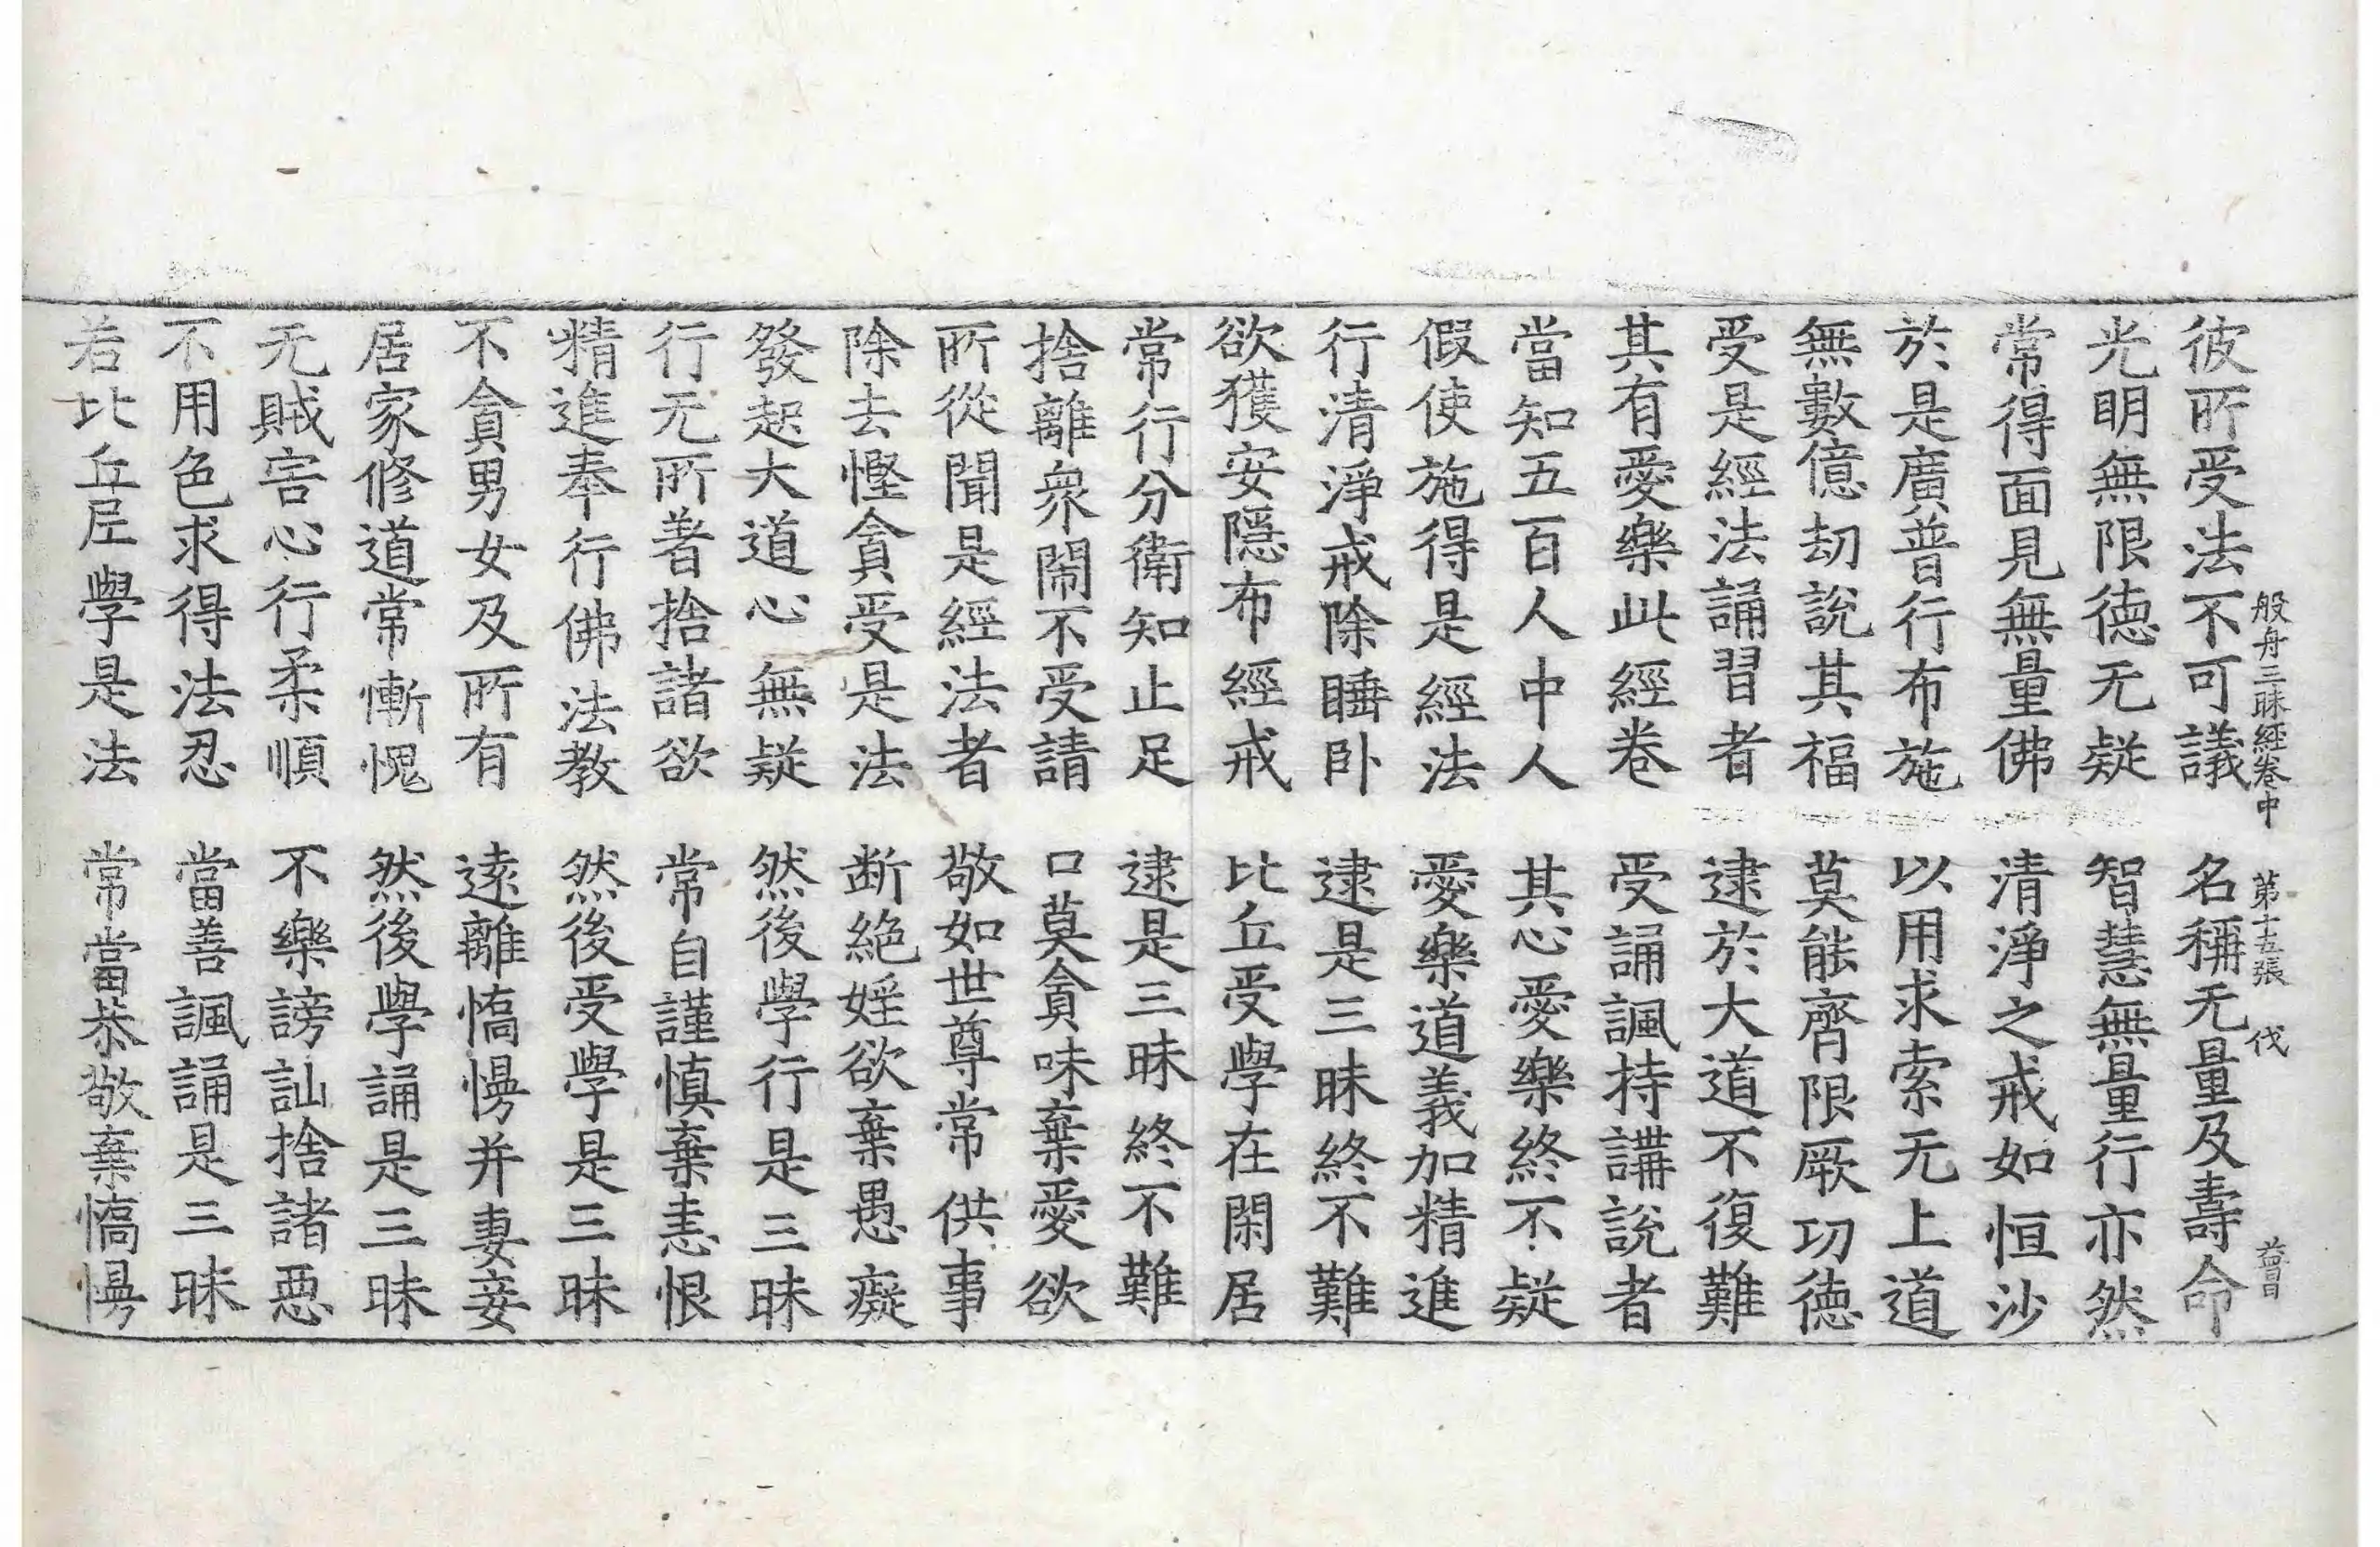 般舟三昧經卷中　第十五張　伐　普
彼所受法不可議　名稱无量及壽命
光明無限德无疑　智慧無量行亦然
常得面見無量佛　清淨之戒如恒沙
於是廣普行布施　以用求索无上道
無數億劫說其福　莫能齊限厥功德
受是經法誦習者　逮於大道不復難
其有愛樂此經卷　受誦諷持講說者
當知五百人中人　其心愛樂終不疑
假使施得是經法　愛樂道義加精進
行清淨戒除睡卧　逮是三昧終不難
欲獲安隱布經戒　比丘受學在閑居
常行分衛知止足　逮是三昧終不難
捨離衆閙不受請　口莫貪味棄愛欲
所從聞是經法者　敬如世尊常供事
除去慳貪受是法　断絕婬欲棄愚癡
發起大道心無疑　然後學行是三昧
行无所著捨諸欲　常自謹慎棄恚恨
精進奉行佛法教　然後受學是三昧
不貪男女及所有　遠離憍慢并妻妾
居家修道常慚愧　然後學誦是三昧
无賊害心行柔順　不樂謗訕捨諸惡
不用色求得法忍　當善諷誦是三昧
若比丘尼學是法　常當恭敬棄憍慢